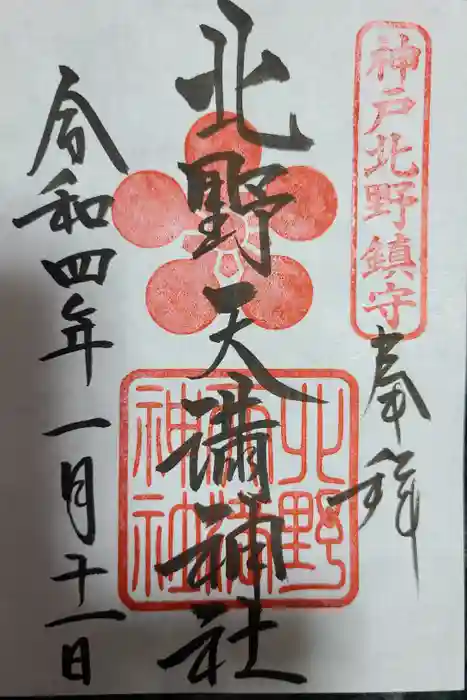 神戸北野鎮守
奉拝
北野天満神社
北野天満神社
令和四年一月十一日